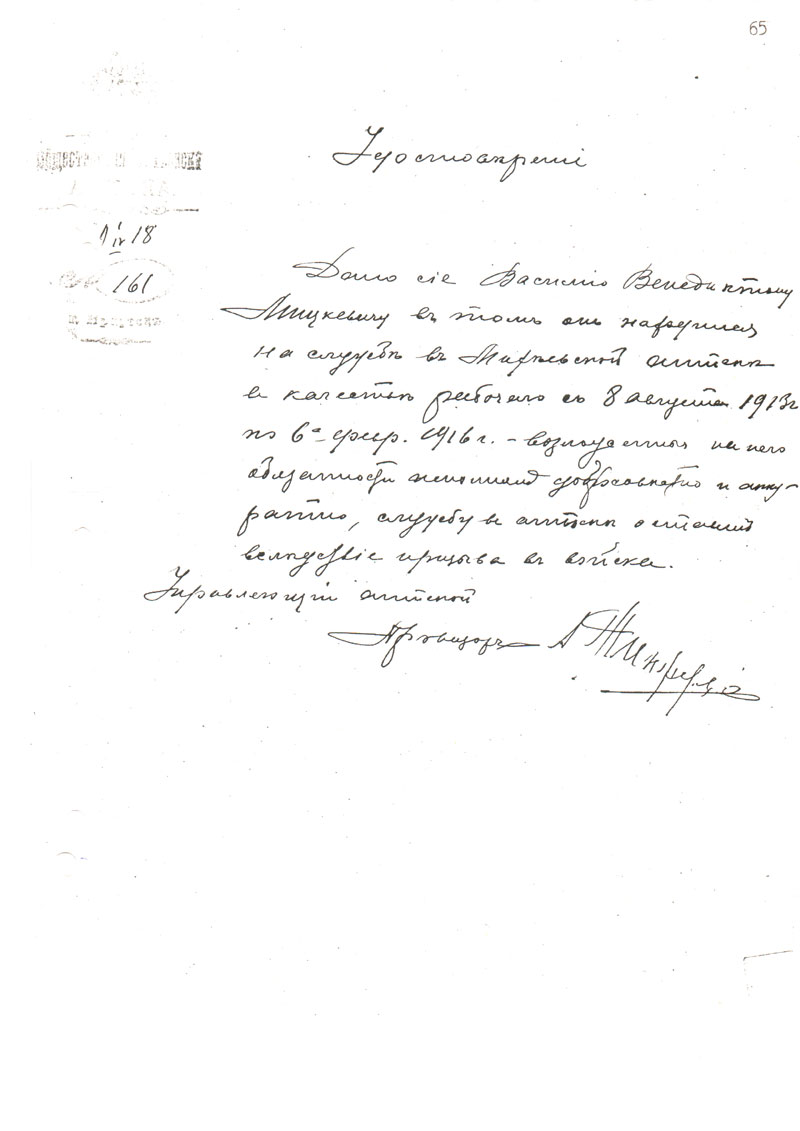 65
Удостоверенi
1/IV 18
161
г. Иркутскъ
Дано сiе Василiю Венедиктову
Мицкевичу въ томъ онъ находился
на службѣ въ аптекѣ
въ качествѣ рабочего съ 8 августа 1913 г
по 6е февр. 1916 г. - возложенныя на него
обязанности исполнялъ добросовѣстно и акку-
ратно, службу въ аптекѣ оставилъ
вслѣдствiе призыва въ войска.
Управляющiй аптекой
Провизоръ